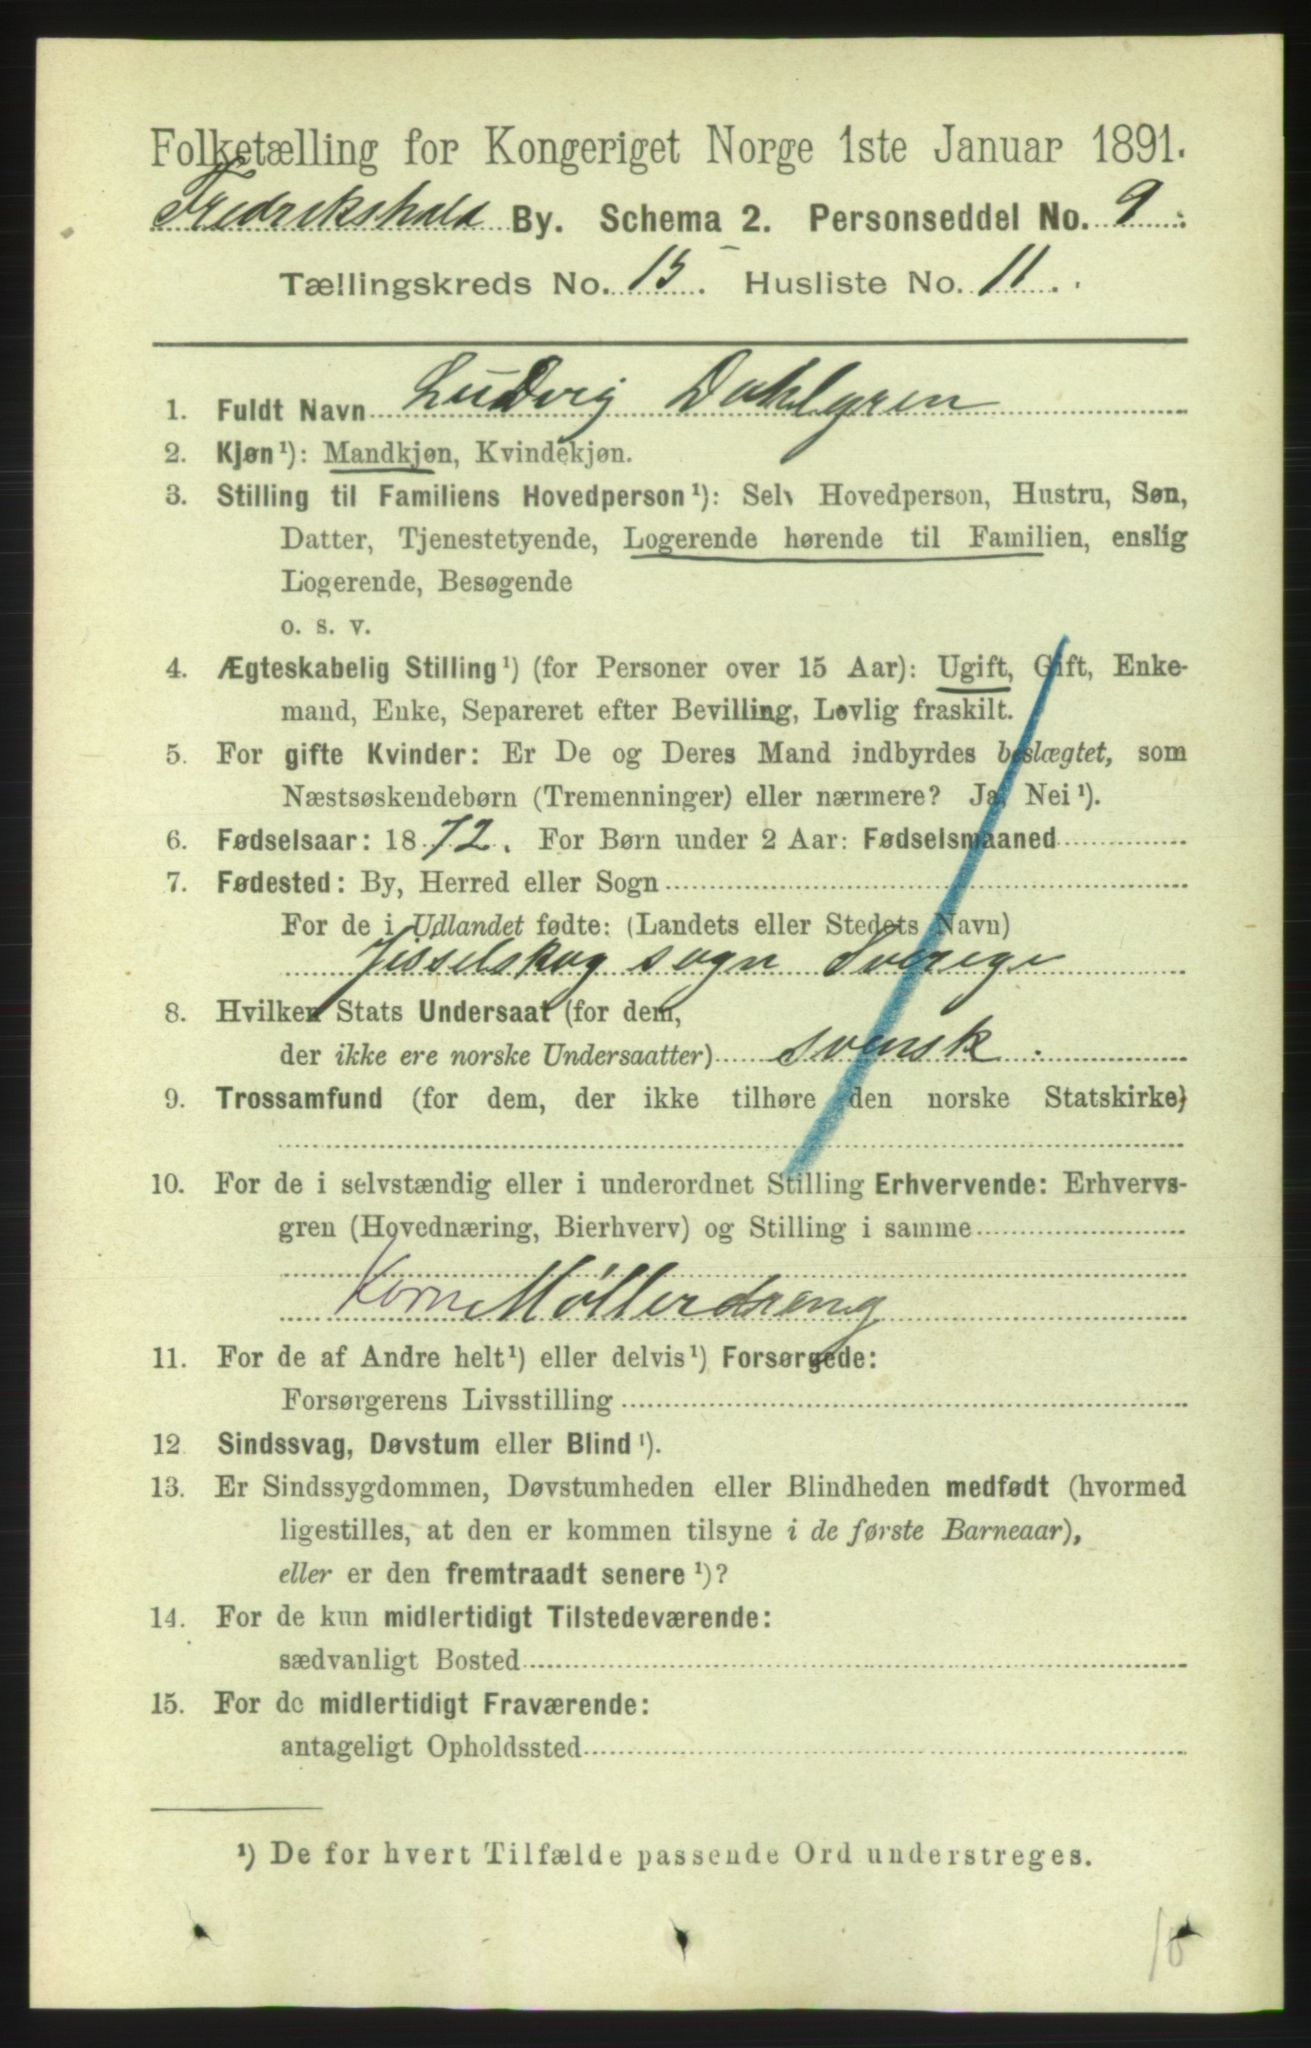 Folketælling for Kongeriget Norge 1ste Januar 1891.
Fredrikshald By. Schema 2. Personseddel No. 9.
Tællingskreds No. 15. Husliste No. 11.
1. Fuldt Navn Ludvig Dahlgren
2. Kjøn¹): Mandkjøn, Kvindekjøn.
3. Stilling til Familiens Hovedperson¹): Selv Hovedperson, Hustru, Søn,
Datter, Tjenestetyende, Logerende hørende til Familien, enslig
Logerende, Besøgende
o. s. v.
4. Ægteskabelig Stilling¹) (for Personer over 15 Aar): Ugift, Gift, Enke-
mand, Enke, Separeret efter Bevilling, Lovlig fraskilt.
5. For gifte Kvinder: Er De og Deres Mand indbyrdes beslægtet, som
Næstsøskendebørn (Tremenninger) eller nærmere? Ja, Nei¹).
6. Fødselsaar: 1872. For Børn under 2 Aar: Fødselsmaaned
7. Fødested: By, Herred eller Sogn
For de i Udlandet fødte: (Landets eller Stedets Navn)
Tisselskog sogn Sverige
8. Hvilken Stats Undersaat (for dem,
der ikke ere norske Undersaatter) svensk.
9. Trossamfund (for dem, der ikke tilhøre den norske Statskirke)
10. For de i selvstændig eller i underordnet Stilling Erhvervende: Erhvervs-
gren (Hovednæring, Bierhverv) og Stilling i samme
Korn Møllerdreng
11. For de af Andre helt¹) eller delvis¹) Forsørgede:
Forsørgerens Livsstilling
12 Sindssvag, Døvstum eller Blind¹).
13. Er Sindssygdommen, Døvstumheden eller Blindheden medfødt (hvormed
ligestilles, at den er kommen tilsyne i de første Barneaar),
eller er den fremtraadt senere¹)?
14. For de kun midlertidigt Tilstedeværende:
sædvanligt Bosted
15. For de midlertidigt Fraværende:
antageligt Opholdssted
¹) De for hvert Tilfælde passende Ord understreges.